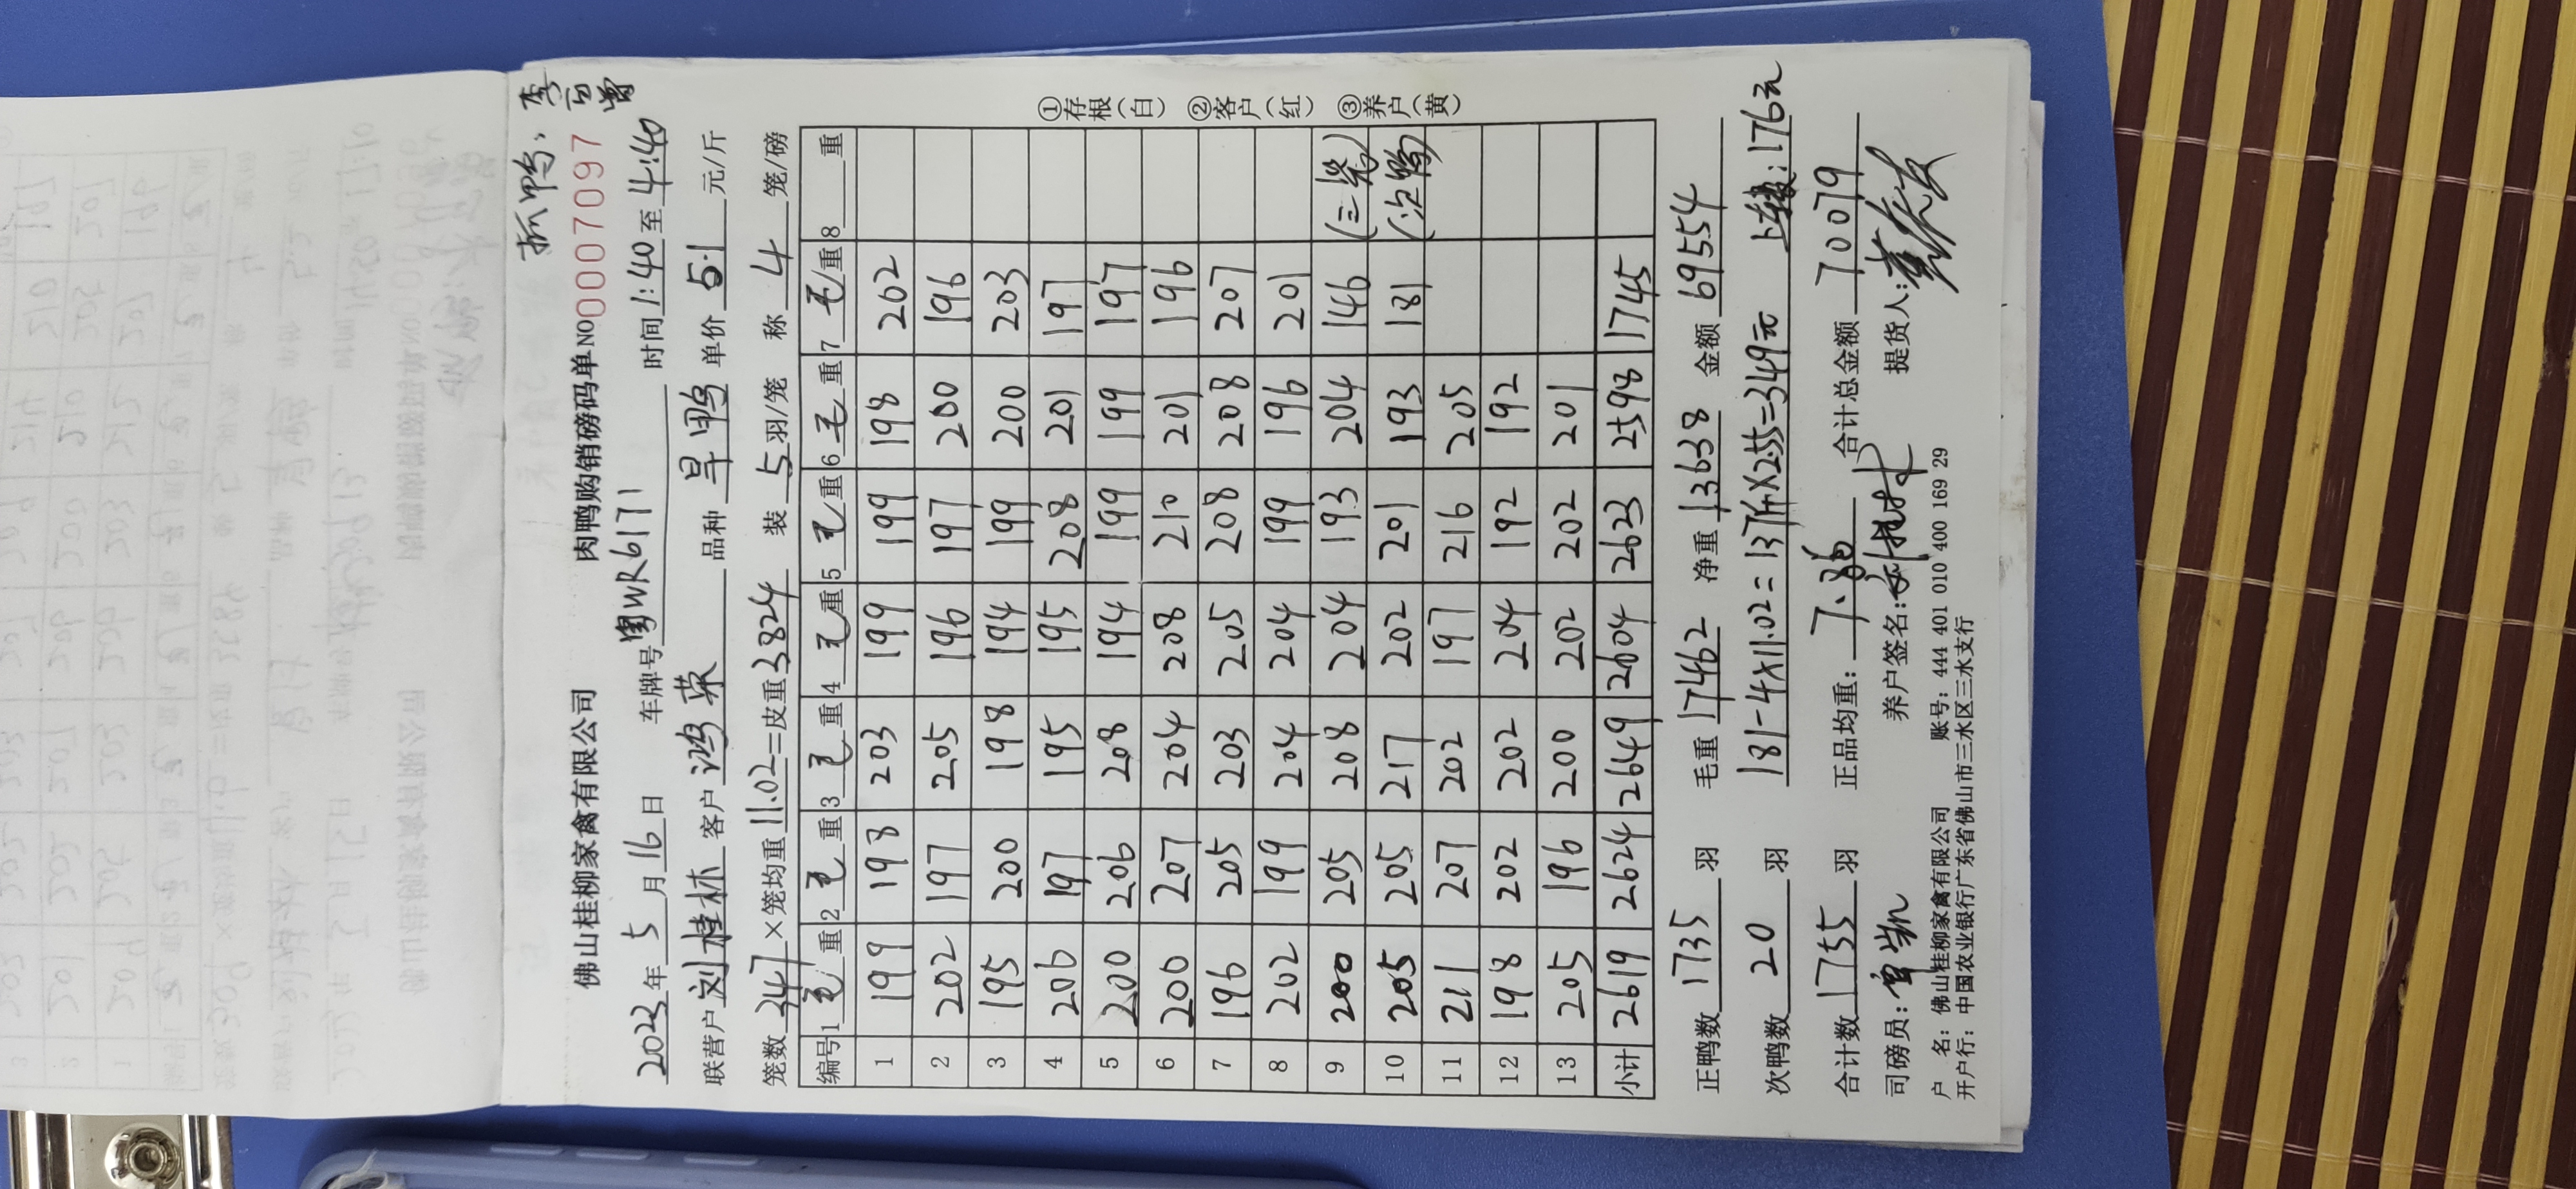 抓鸭：李百曾
佛山桂柳家禽有限公司 肉鸭购销磅码单 NO 0007097
2023年5月16日 车牌号粤WR6171 时间1:40至4:40
联营户 刘桂林 客户 鸿荣 品种 旱鸭 单价 5.1 元/斤
笼数 347 ×笼均重 11.02 =皮重 3824 装 5 羽/笼 称 4 笼/磅
编号 1毛重 2毛重 3毛重 4毛重 5毛重 6毛重 7毛重 8 重
1 199 198 203 199 199 198 202
2 202 197 205 196 197 200 196
3 195 200 198 194 199 200 203
4 206 197 195 195 208 201 197
5 200 206 208 194 199 199 197
6 200 207 204 208 210 201 196
7 196 205 203 205 208 208 207
8 202 199 204 204 199 196 201
9 200 205 208 204 193 204 146 (三笼)
10 205 205 217 202 201 193 181 (次鸭)
11 211 207 202 197 216 205
12 198 202 202 204 192 192
13 205 196 200 202 202 201
小计 2619 2624 2649 2604 2623 2598 1745
①存根(白) ②客户(红) ③养户(黄)
正鸭数 1735 羽 毛重 17462 净重 13638 金额 69554
次鸭数 20 羽 181-4×11.02=137斤×2.55=349元 上楼:176元
合计数 1755 羽 正品均重: 7.86 合计总金额 70079
司磅员: 养户签名:刘桂林 提货人:
户 名：佛山桂柳家禽有限公司 账号：444 401 010 400 169 29
开户行：中国农业银行广东省佛山市三水区三水支行